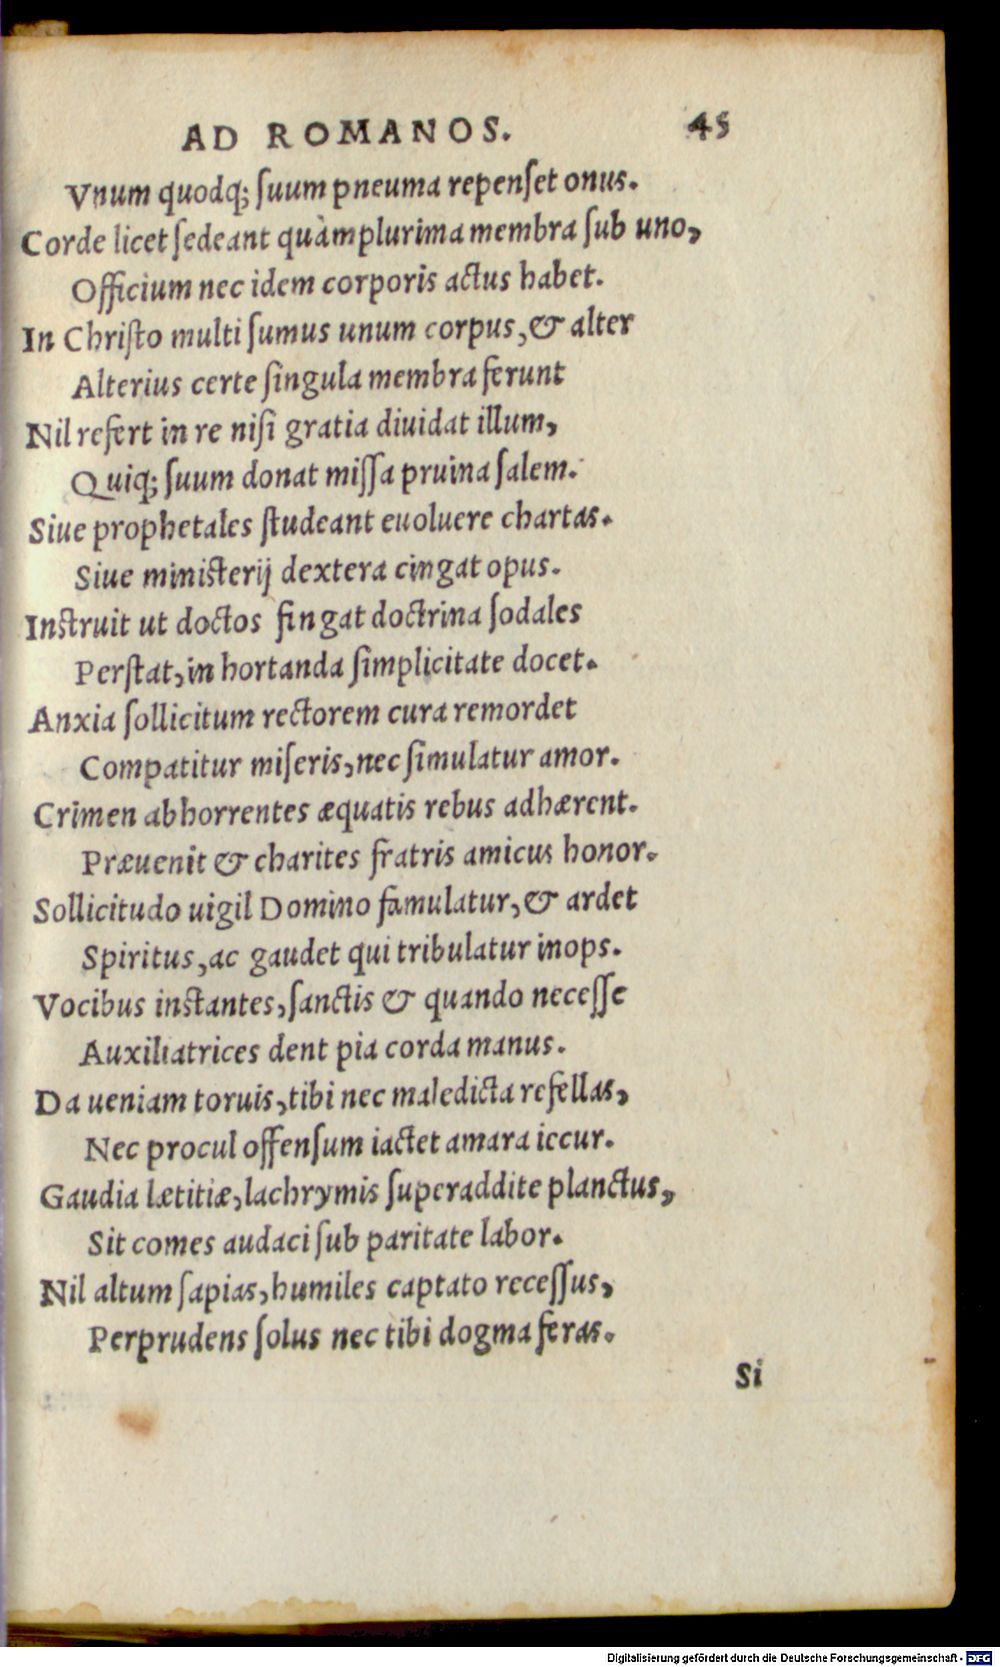 AD ROMANOS. 45
Vnum quodq; ſuum pneuma repenſet onus.
Corde licet ſedeant quàm plurima membra ſub uno,
Officium nec idem corporis actus habet.
In Chriſto multi ſumus unum corpus, & alter
Alterius certe ſingula membra ferunt
Nil refert in re niſi gratia diuidat illum,
Quiq; ſuum donat miſſa pruina ſalem.
Siue prophetales ſtudeant euoluere chartas.
Siue ministerij dextera cingat opus.
Instruit ut doctos fingat doctrina ſodales
Perſtat, in hortanda ſimplicitate docet.
Anxia ſollicitum rectorem cura remordet
Compatitur miſeris, nec ſimulatur amor.
Crimen abhorrentes æquatis rebus adhærent.
Præuenit & charites fratris amicus honor.
Sollicitudo uigil Domino famulatur, & ardet
Spiritus, ac gaudet qui tribulatur inops.
Vocibus instantes, ſanctis & quando neceſſe
Auxiliatrices dent pia corda manus.
Da ueniam toruis, tibi nec maledicta refellas,
Nec procul offenſum iactet amara iecur.
Gaudia lætitiæ, lachrymis ſuperaddite planctus,
Sit comes audaci ſub paritate labor.
Nil altum ſapias, humiles captato receſſus,
Perprudens ſolus nec tibi dogma feras.
Si
Digitalisierung gefördert durch die Deutsche Forschungsgemeinschaft - DFG